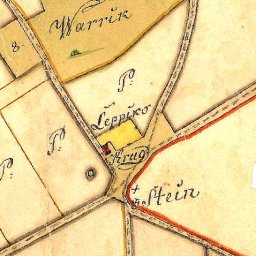 Warrik
8.
P.
Leppiko
P.
Krug
P.
Stein